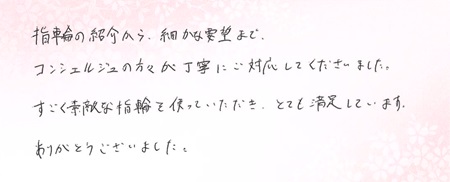 指輪の紹介から、細かな要望まで、
コンシェルジュの方々が丁寧にご対応してくださいました。
すごく素敵な指輪を使っていただき、とても満足しています。
ありがとうございました。